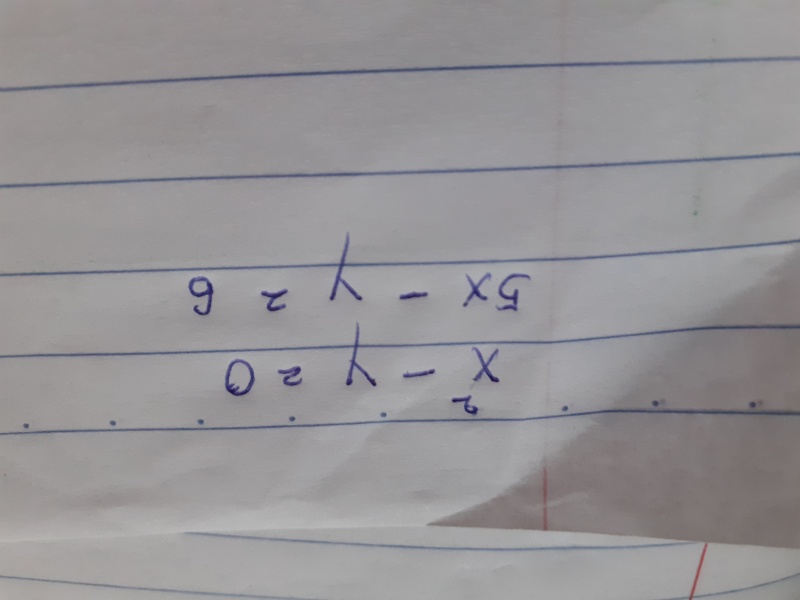 x² - y = 0
5x - y = 6